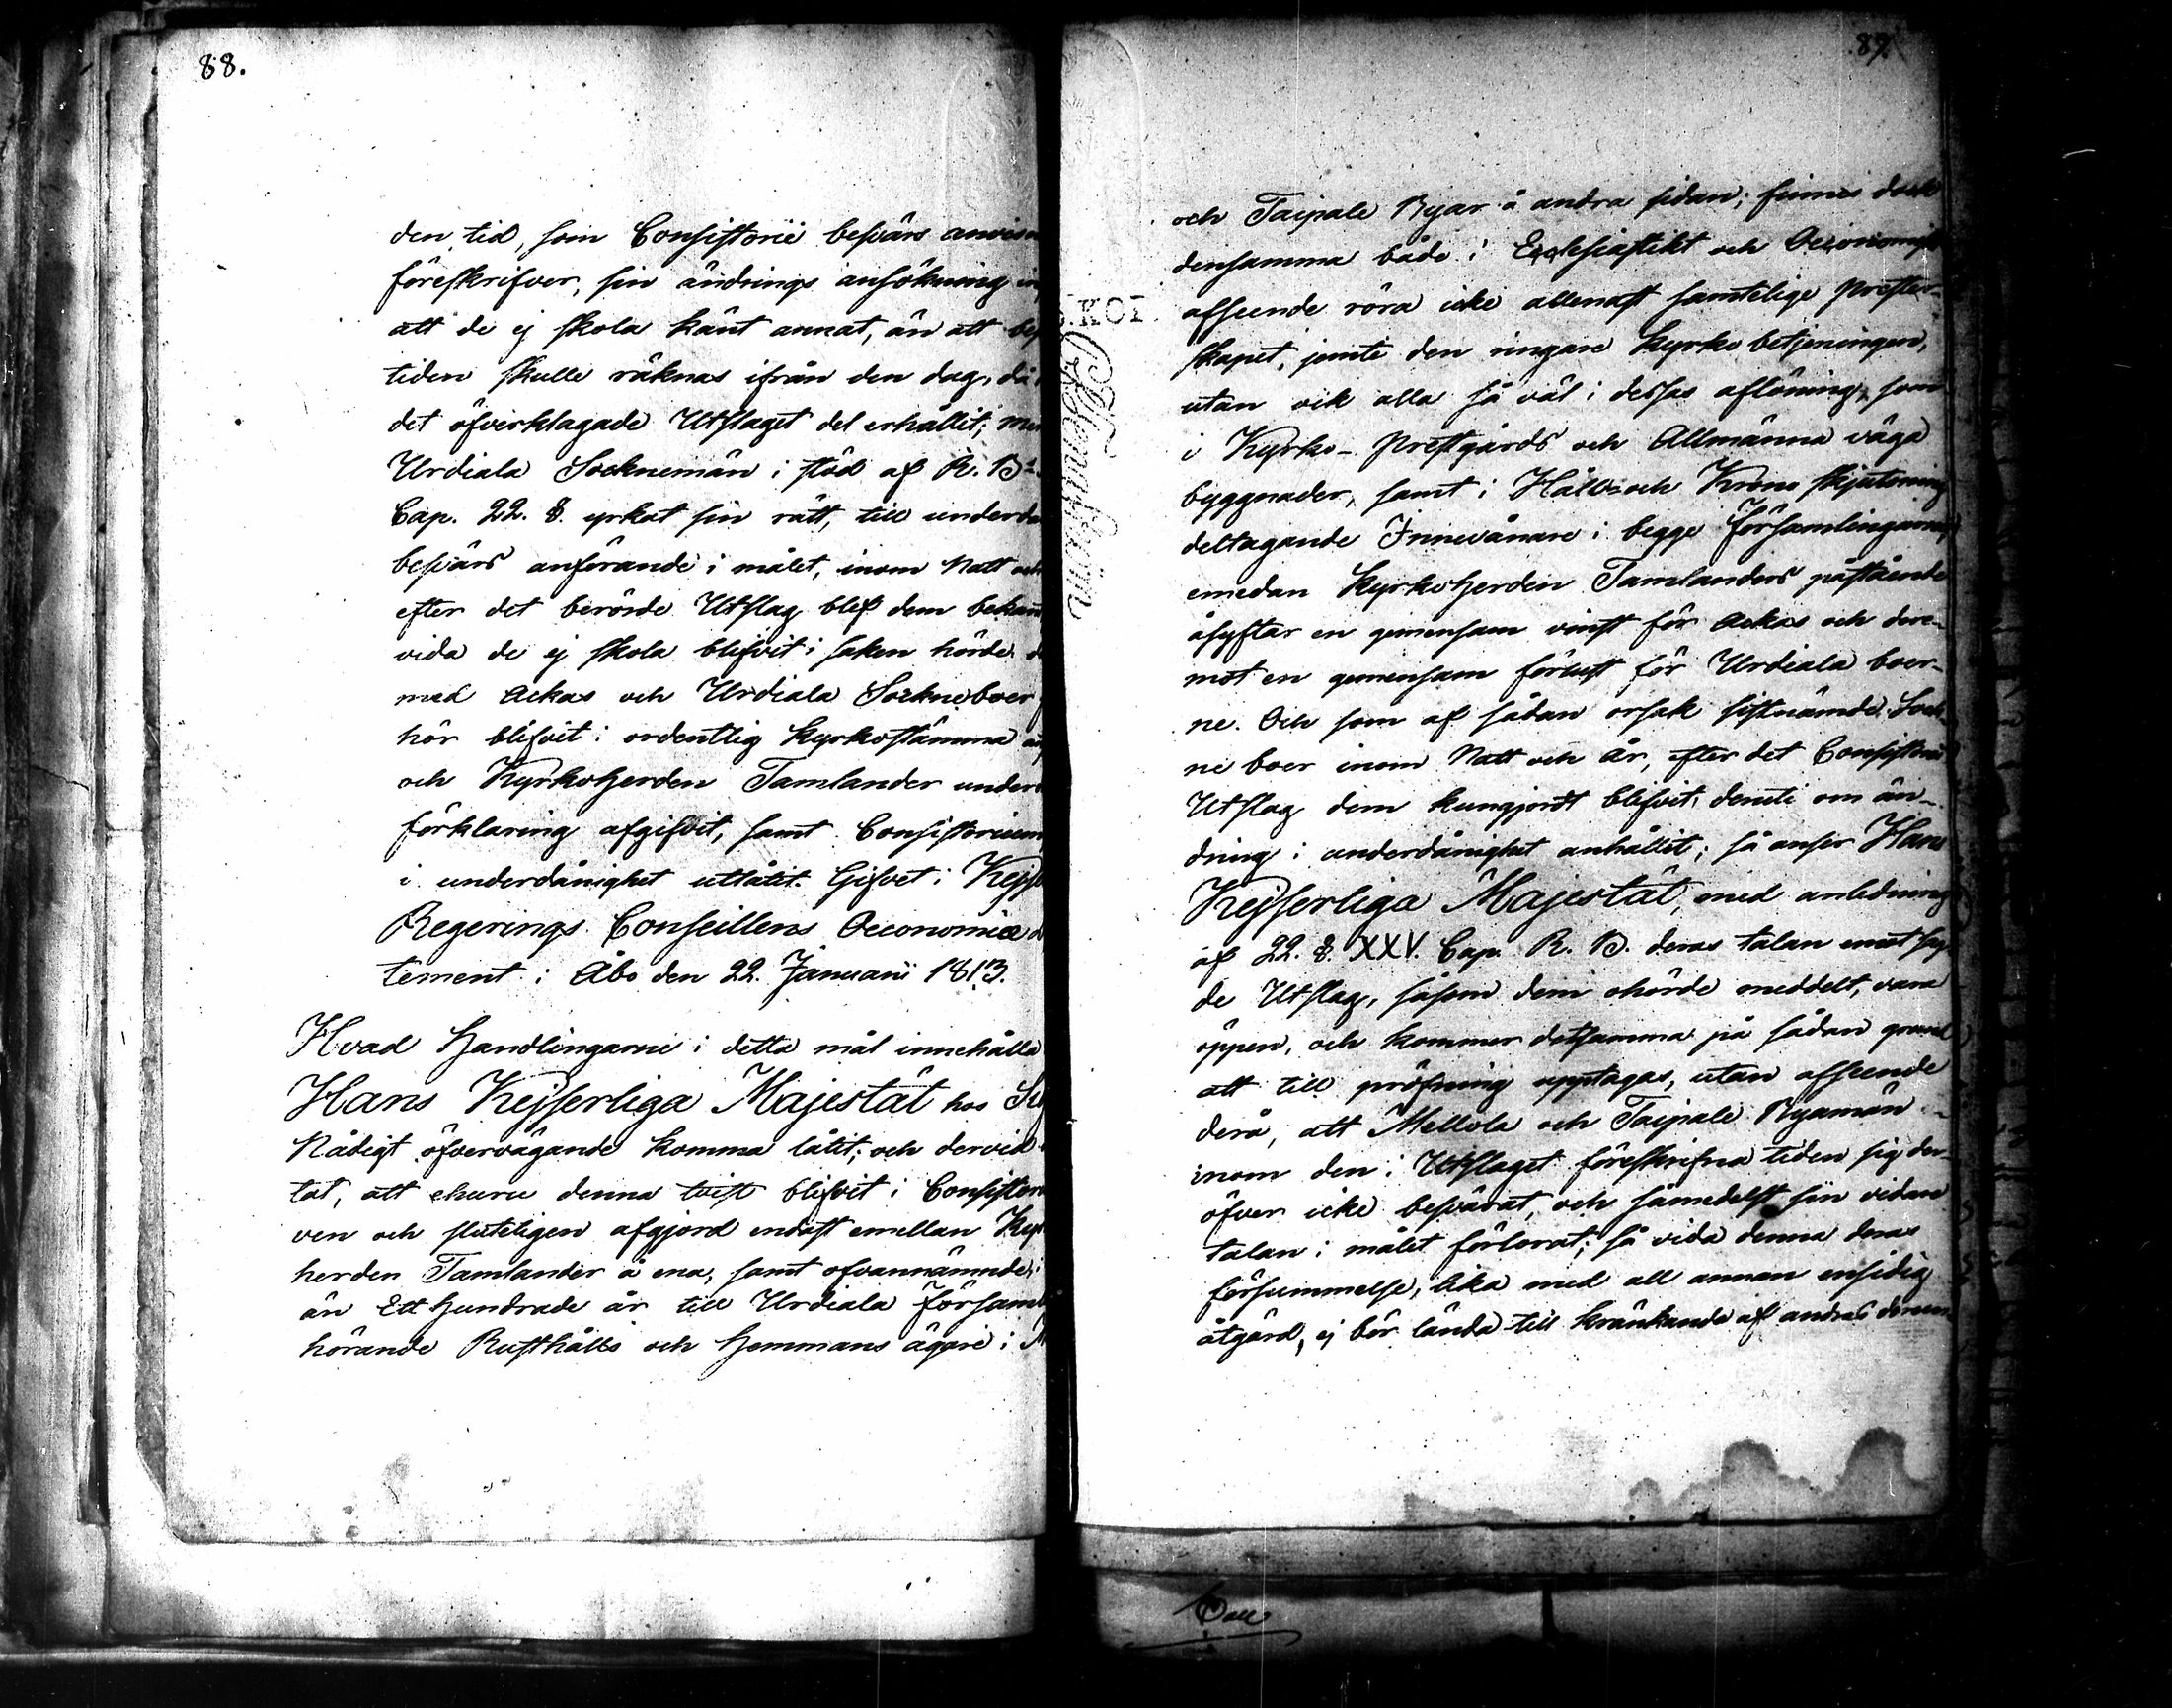 88.
den tid, som Consistorii besvärs anvisn
föreskrifver, sin ändrings ansökning in
att de ej skola känt annat, än att bes
tiden skulle räknas ifrån den dag, då
det öfverklagade Utslaget del erhållit; me
Urdiala Socknemän i stöd af R. B.
Cap. 22. §. yrkat sin rätt, till underdå
besvärs anförande i målet, inom Natt och
efter det berörde Utslag blef dem bekan
vida de ej skola blifvit i saken hörde d
med Ackas och Urdiala Sockneboer
hör blifvit i ordentlig Kyrkostämma
och Kyrkoherden Tamlander under
förklaring afgifvit, samt Consistorium
i underdånighet utlåtit. Gifvet i Kejse
Regerings Conseillens Oeconomiæ de
tement i Åbo den 22. Januarii 1813.
Hvad Handlingarne i detta mål innehålla
Hans Kejserliga Majestät hos
Nådigt öfvervägande komma låtit; och dervid
tat, att ehuru denna tvist blifvit i Consistor
ven och sluteligen afgjord endast emellan Kyr
herden Tamlander å ena, samt ofvannämnde,
än Ett hundrade år till Urdiala Försam
hörande Rusthålls och Hemmans ägare i M
89.
och Taipale Byar å andra sidan; finnes dock
densamma både i Ecclesiastikt och Oeconomisk
afseende röra icke allenast samtelige Prester-
skapet, jemte den ringare Kyrko betjeningen,
utan ock alla så väl i dessas aflöning, som
i Kyrko- Prestgårds och Allmänna väga
byggnader, samt i Hålls och Krono skjutsning
deltagande Innevånare i begge Församlingarne,
emedan Kyrkoherden Tamlanders påstående
åsyftar en gemensam vinst för Ackas och dere-
mot en gemensam förlust för Urdiala boer-
ne. Och som af sådan orsak sistnämde Sock-
ne boer inom Natt och År, efter det Consistorii
Utslag dem kungjordt blifvit, deruti om än-
dring i underdånighet anhållit; så anser Hans
Kejserliga Majestät, med anledning
af 22. §. XXV. Cap. R. B. deras talan emot
de Utslag, såsom dem ohörde meddelt, vara
öppen, och kommer detsamma på sådan grund
att till pröfning upptagas, utan afseende
derå, att Mellola och Taipale Byamän
inom den i Utslaget föreskrifna tiden sig der-
öfver icke besvärat, och såmedelst sin vidare
talan i målet förlorat; så vida denna deras
försummelse, lika med all annan ensidig
åtgärd, ej bör lända till kränkande af andras derem